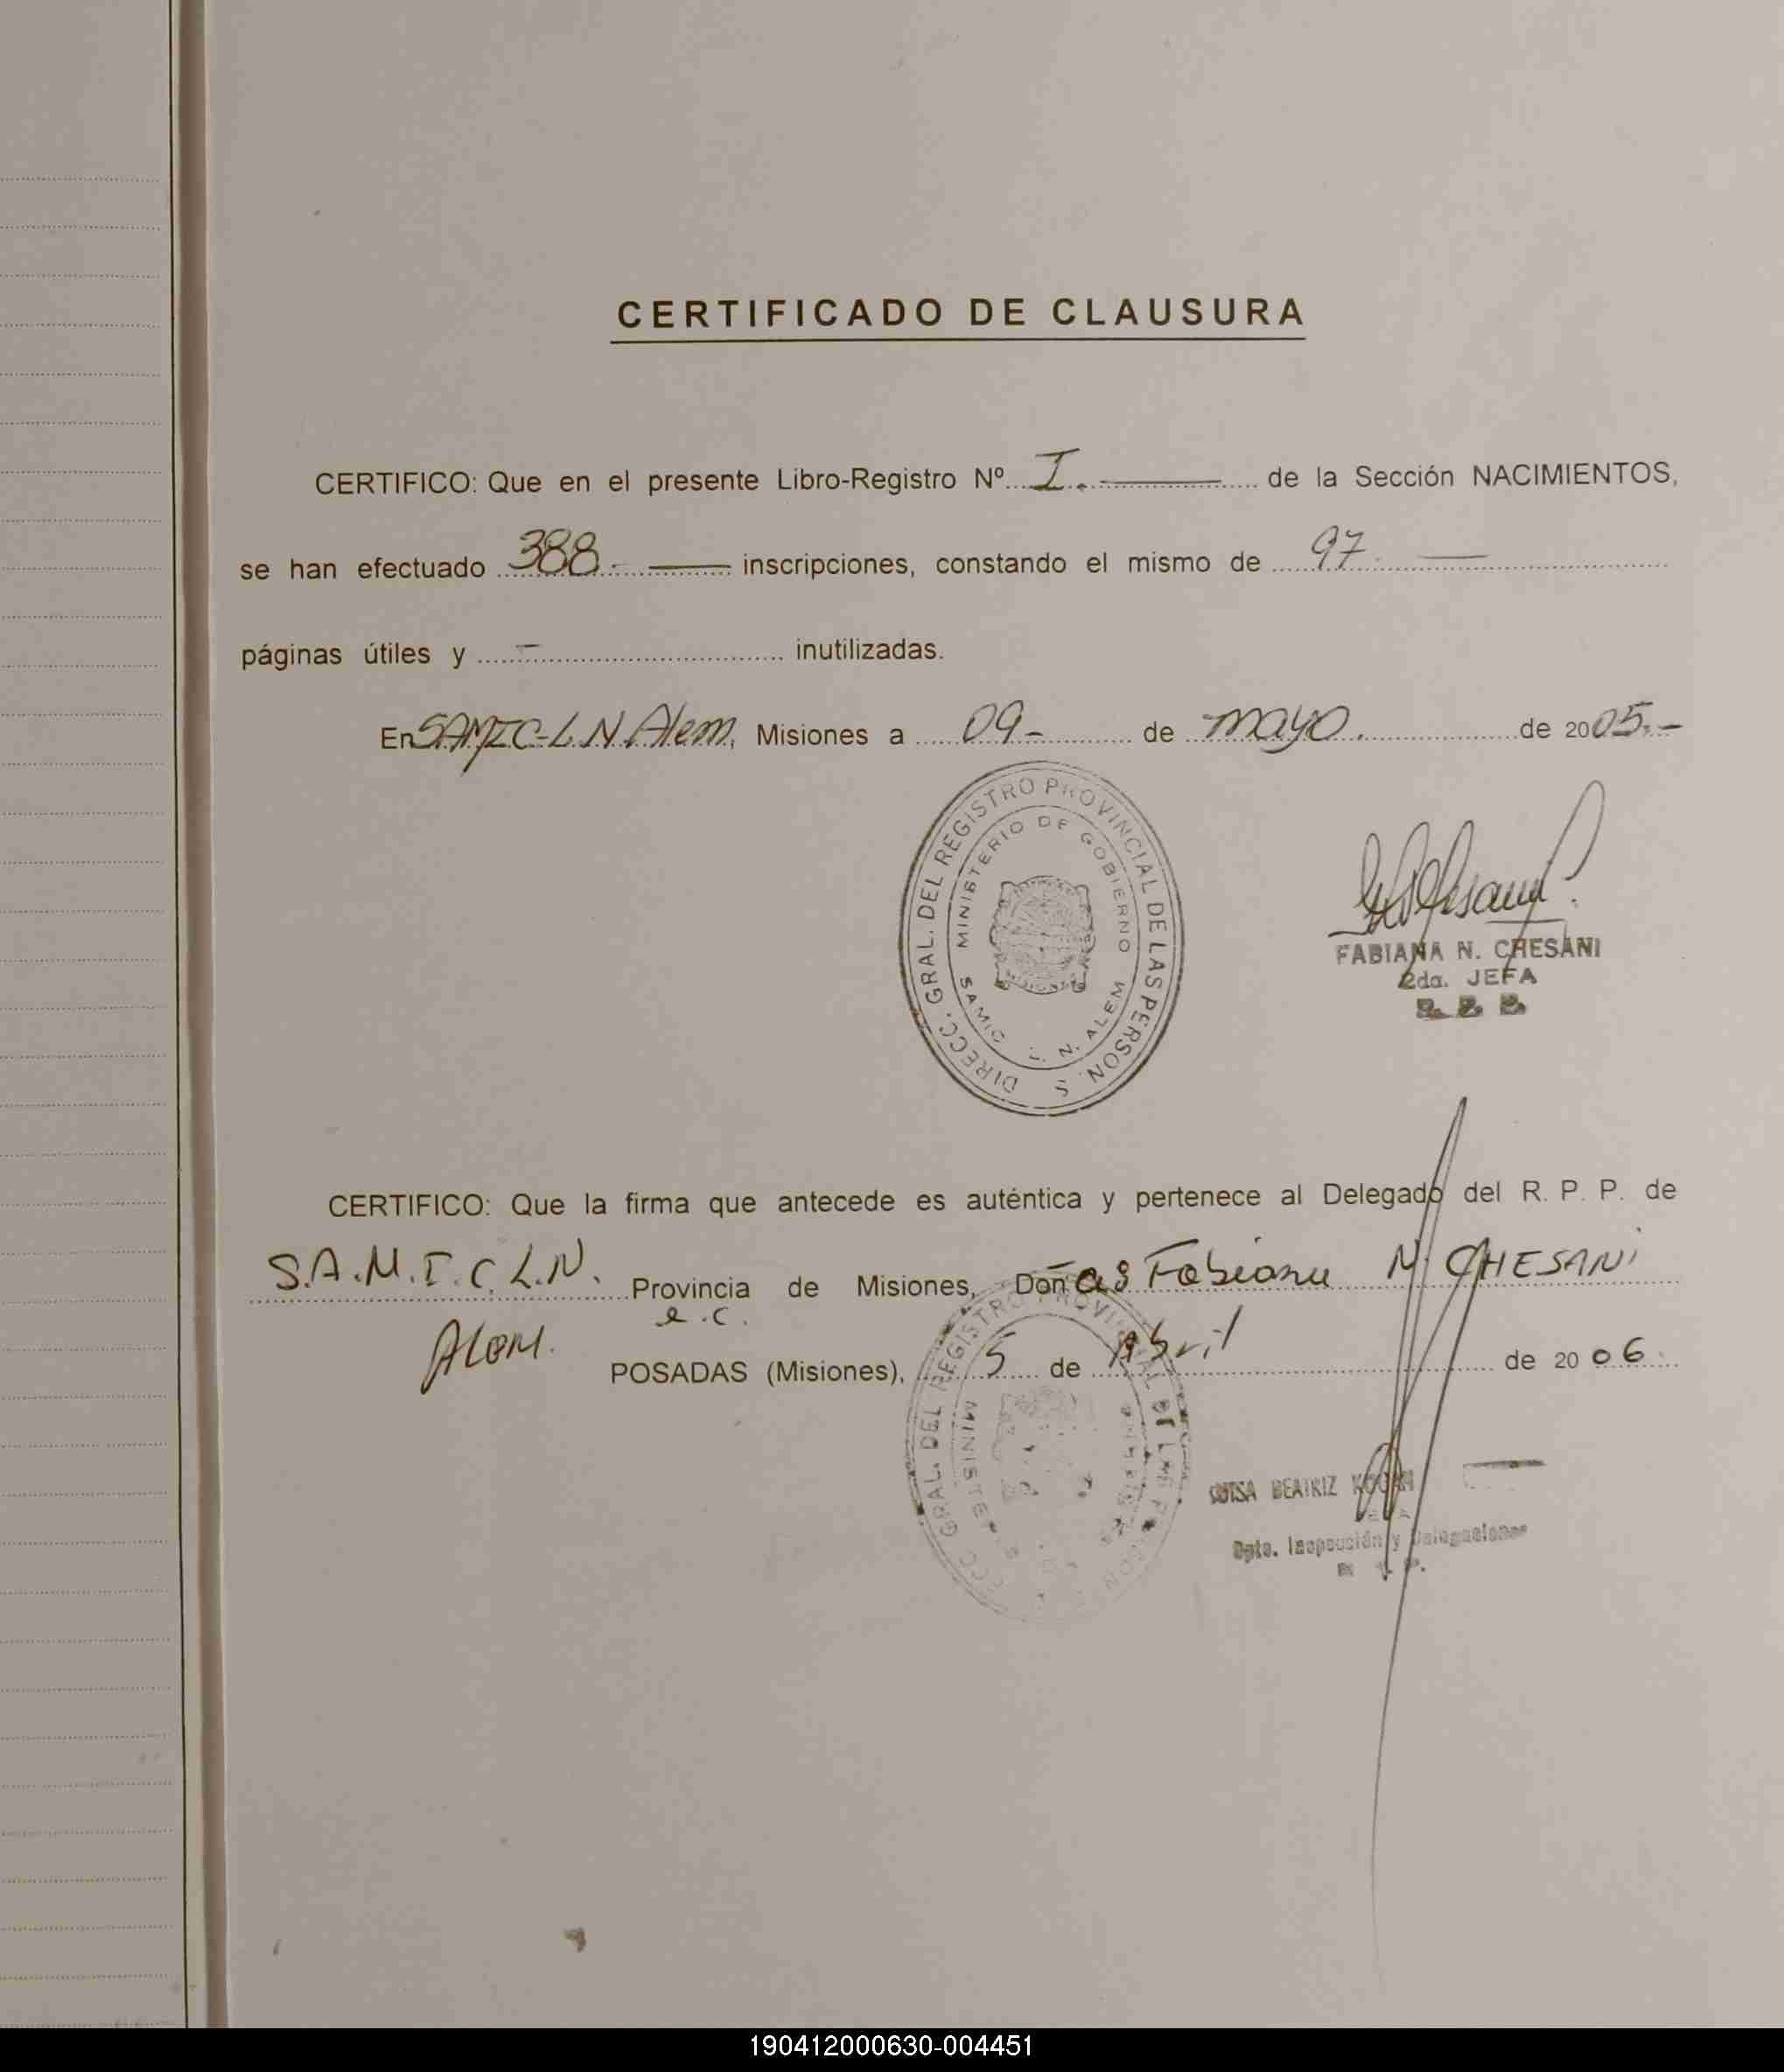 CERTIFICADO DE CLAUSURA
CERTIFICO: Que en el presente Libro-Registro Nº I. de la Sección NACIMIENTOS,
se han efectuado 388.- inscripciones, constando el mismo de 97.
páginas útiles y - inutilizadas.
En SAMIC-L.N. Alem, Misiones a 09- de mayo. de 2005.-
DIRECC. GRAL. DEL REGISTRO PROVINCIAL DE LAS PERSON. S
MINISTERIO DE GOBIERNO
SAMIC L. N. ALEM
MISIONES
FABIANA N. CHESANI
2da. JEFA
CERTIFICO: Que la firma que antecede es auténtica y pertenece al Delegado del R. P. P. de
S.A.M.I.C. L.N. Provincia de Misiones, Doña Fabiana N. CHESANI
ALEM. e.c.
POSADAS (Misiones), 5 de Abril de 2006
GRAL. DEL REGISTRO PROVINCIAL
MINISTE
BEATRIZ
Dpto. Inspección y Delegaciones
190412000630-004451